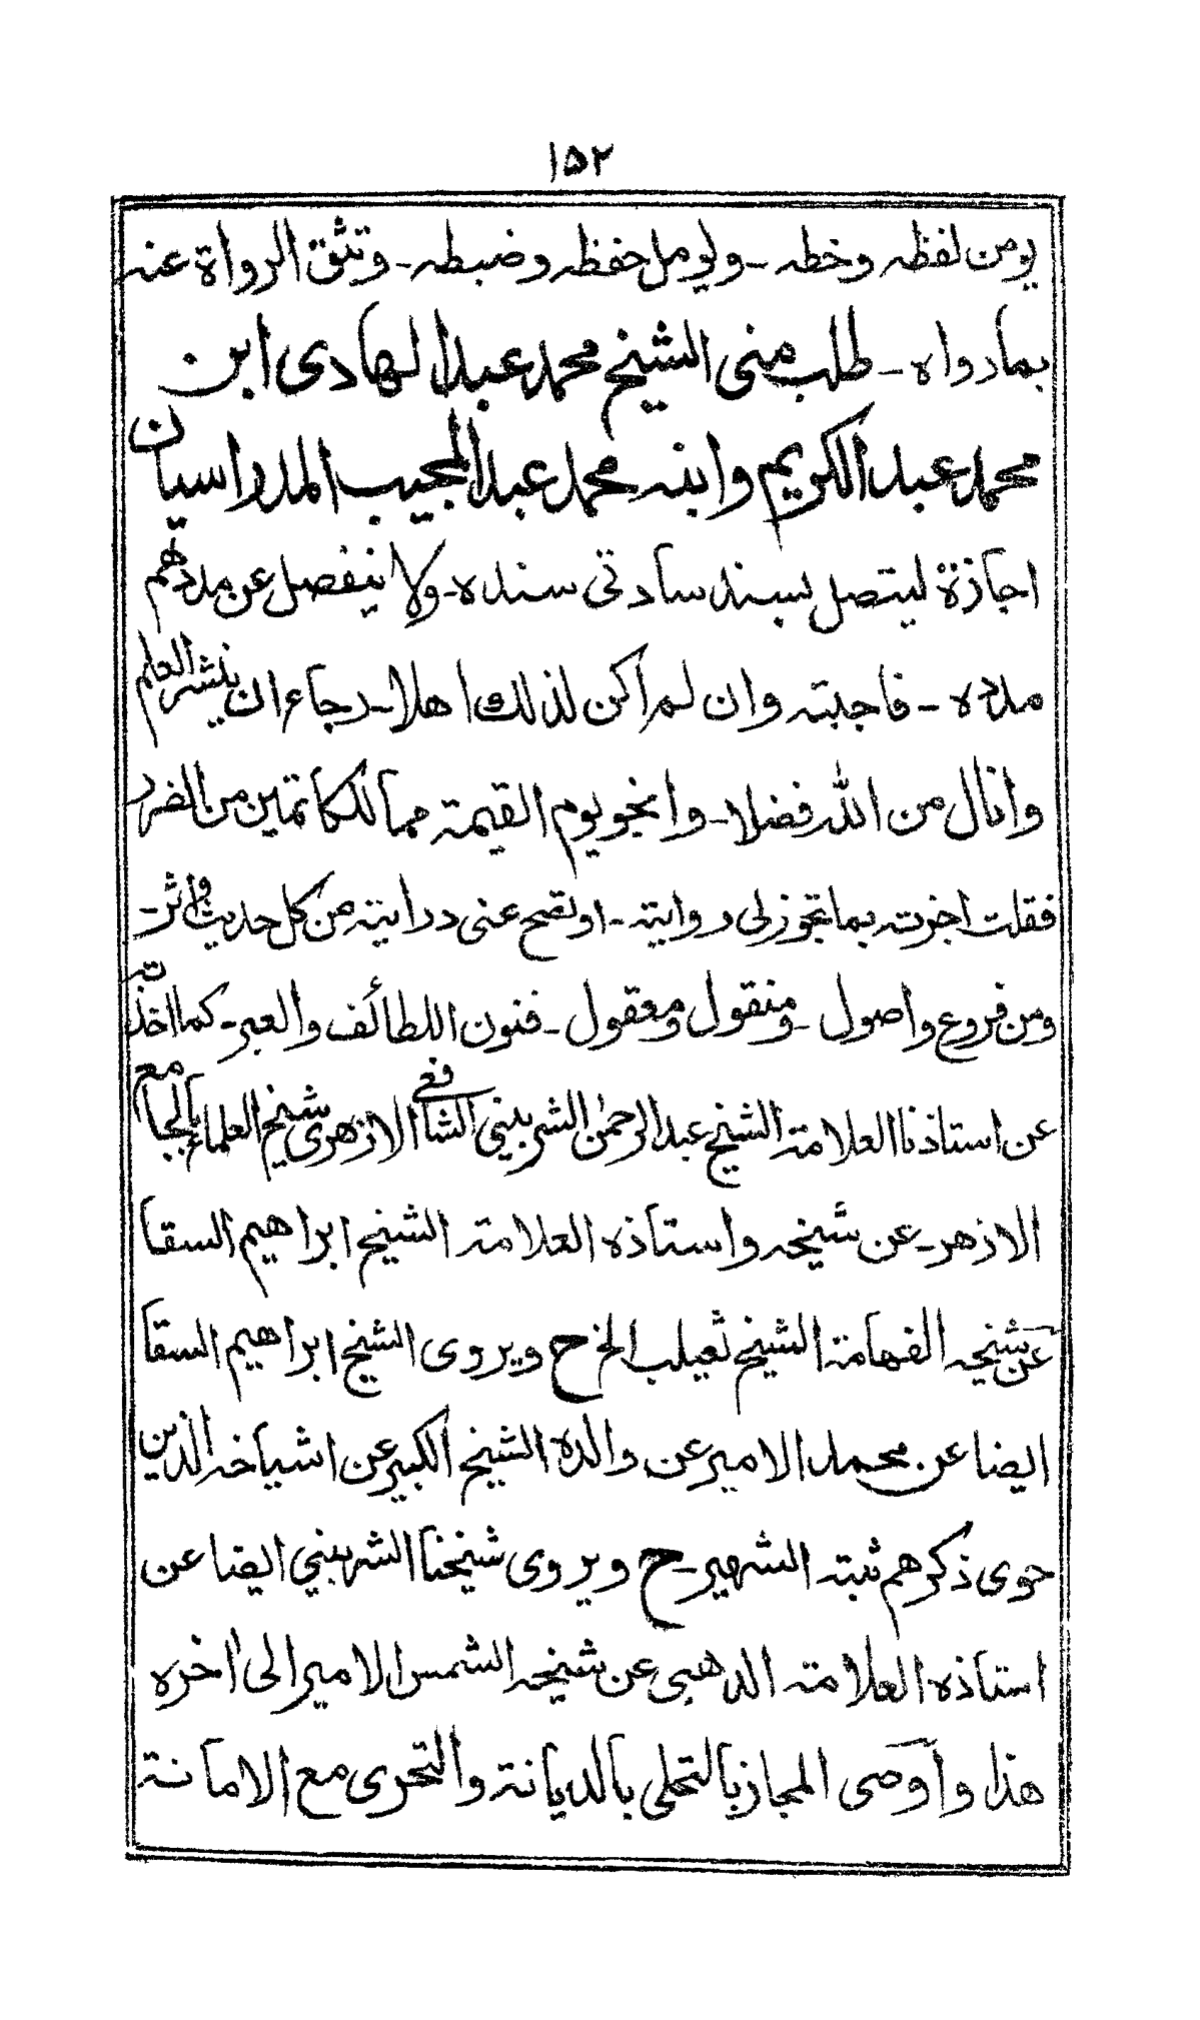 ١٥٢
يومن لفظه وخطه - ولومل حفظه وضبطه - وتثق الرواة عنه
بما رواه - طلب منى الشيخ محمد عبد الهادى ابن
محمد عبد الكريم وابنه محمد عبد المجيب المدراسيان
اجازة ليتصل بسند سادتى سنده - ولا ينفصل عن مددهم
مدده - فاجبته وان لم اكن لذلك اهلا - رجاء ان ينشر العلم
وانال من الله فضلا - وانجو يوم القيمة مما للكاتمين من الضرر
فقلت اجزته بما تجوز لى روايته - او تصح عنى درايته من كل حديث واثر -
ومن فروع واصول - ومنقول ومعقول - فنون اللطائف والعبر - كما اخذته
عن استاذنا العلامة الشيخ عبد الرحمن الشربيني الشافعى الازهرى شيخ العلماء بالجامع
الازهر - عن شيخه واستاذه العلامة الشيخ ابراهيم السقا
عن شيخه الفهامة الشيخ ثعيلب الخ ح ويروى الشيخ ابراهيم السقا
ايضا عن محمد الامير عن والده الشيخ الكبير عن اشياخه الذين
حوى ذكرهم ثبته الشهير - ح ويروى شيخنا الشربيني ايضا عن
استاذه العلامة الذهبى عن شيخه الشمس الامير الى اخره
هذا واوصى المجاز بالتحلى بالديانة والتحرى مع الامانة